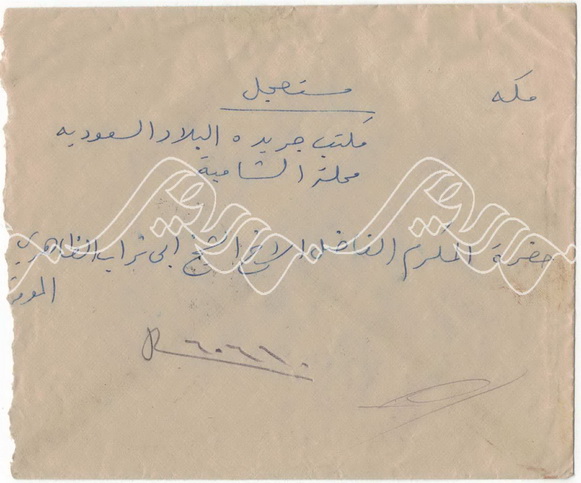 مكه
مستعجل
مكتب جريدة البلاد السعوديه
محلة الشامية
حضرة المكرم الفاضل الاخ الشيخ ابى تراب الظاهري
R ٦٠٦٦٠